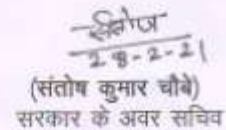 संतोष
28-2-21
(संतोष कुमार चौबे)
सरकार के अवर सचिव